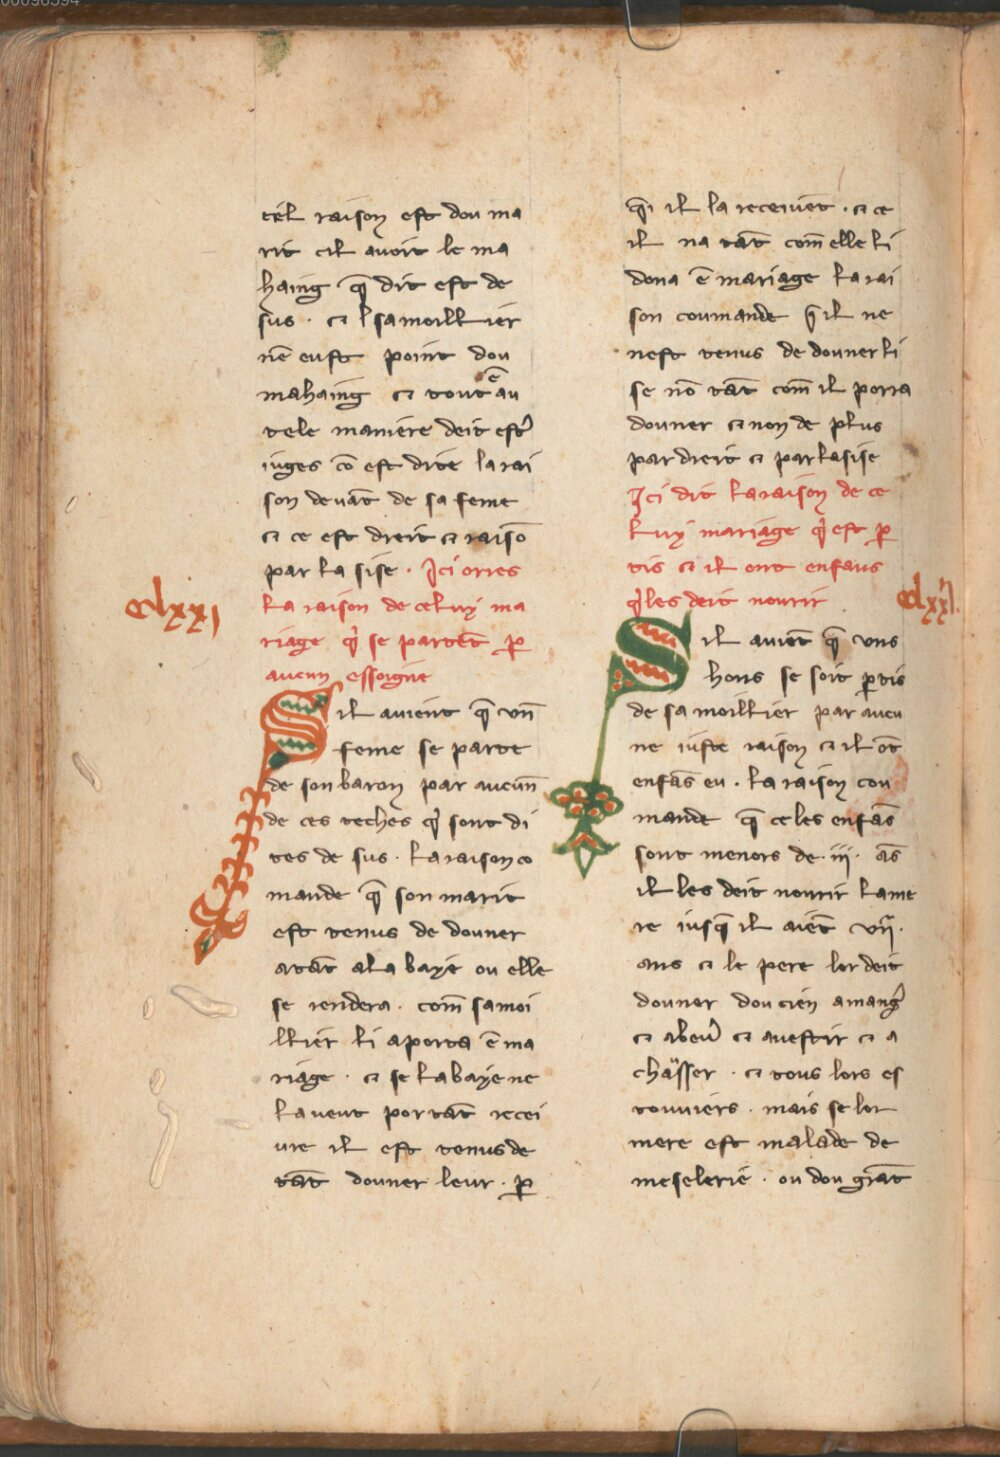 tel raison est dou ma
rit cil avoit le ma
haing q̄ dit est de
sus · ⁊ l sa moillier
nē eust point dou
mahaing ⁊ tout ē au
tele maniere deit estˀ
iuges cō est dite la rai
son devāt de sa feme
⁊ ce est dreit ⁊ raisō
par la sise · Ici orres
la raison de celuy ma
riage qˈ se partēt ꝑ
aucun essoigne
clxxj
Sil avient q̄ vn̄
feme se parte
de son baron par aucun̄
de ces teches qˈ sont di
tes de sus · la raison co
mande q̄ son marit
est tenus de douner
atāt a la baye ou elle
se rendera · com̄ sa moi
llier li aporta ē ma
riage · ⁊ se la baye ne
la veut por tāt recei
vre il est tenus de
tāt douner leur · ꝑ
q̄ il la receivēt · ⁊ ce
il na tāt com̄ elle li
dona ē mariage la rai
son coumande q̄ il ne
nest tenus de douner li
se nō tāt com̄ il porra
douner ⁊ non de plus
par dreit ⁊ par lasise
Ici dit la raison de ce
luy mariage qˈ est ꝑ
tis ⁊ il ont enfans
qˈ les deit nourir
clxxij.
Sil aviēt q̄ vns
hons se soit ꝑtis
de sa moillier par aucu
ne iuste raison ⁊ il ōt
enfās eu · la raison cou
mande q̄ ce les enfās
sont menors de · iij · ās
il les deit nourir la me
re iusq̄ il aiēt vij ·
ans ⁊ le pere lor deit
douner dou cien amangˀ
⁊ abevˀ ⁊ avestir ⁊ a
chasser · ⁊ tous lors es
touviers · mais se lor
mere est malade de
meselerie · ou dou grāt